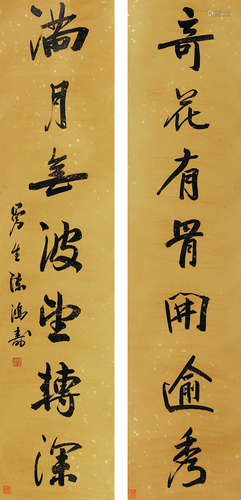 奇花有骨開逾秀
满月無波望轉深
曼生陳鴻壽